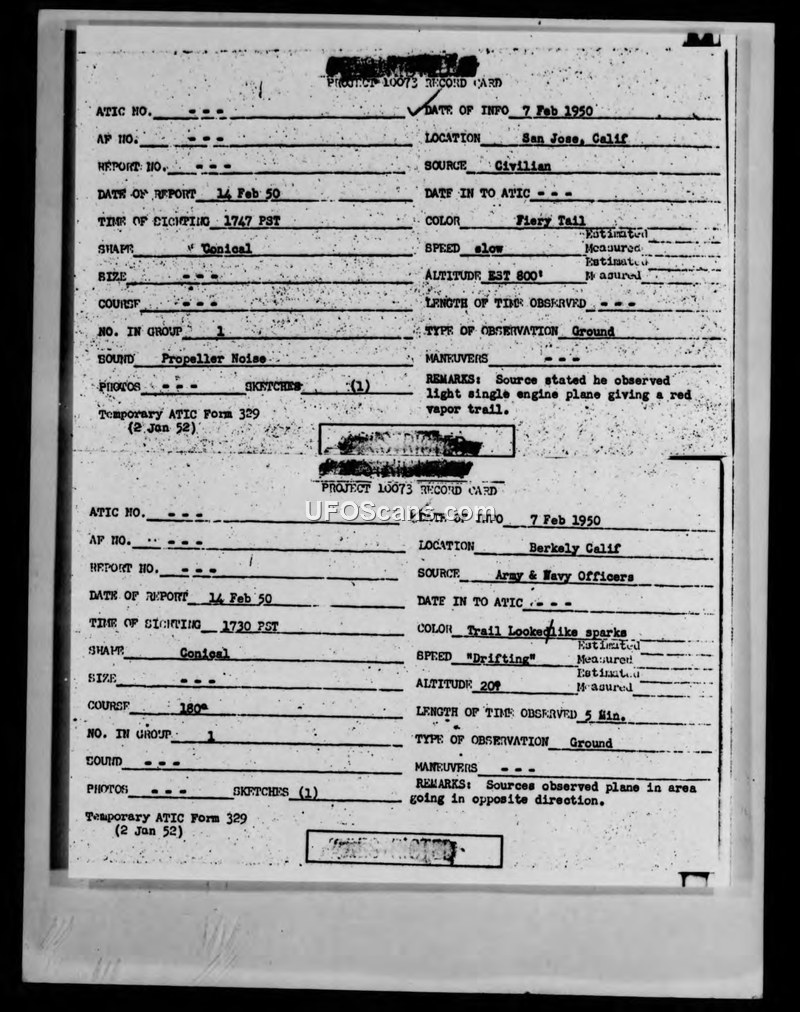 PROJECT 10073 RECORD CARD
ATIC NO. - - - DATE OF INFO 7 Feb 1950
AF NO. - - - LOCATION San Jose, Calif
REPORT NO. - - - SOURCE Civilian
DATE OF REPORT 14 Feb 50 DATE IN TO ATIC - - -
TIME OF SIGHTING 1747 PST COLOR Fiery Tail
SHAPE Conical SPEED slow Estimated Measured
SIZE - - - ALTITUDE EST 800' Estimated Measured
COURSE - - - LENGTH OF TIME OBSERVED - - -
NO. IN GROUP 1 TYPE OF OBSERVATION Ground
SOUND Propeller Noise MANEUVERS - - -
PHOTOS - - - SKETCHES (1) REMARKS: Source stated he observed
light single engine plane giving a red
vapor trail.
Temporary ATIC Form 329
(2 Jan 52)
PROJECT 10073 RECORD CARD
UFOScans.com
ATIC NO. - - - DATE OF INFO 7 Feb 1950
AF NO. - - - LOCATION Berkely Calif
REPORT NO. - - - SOURCE Army & Navy Officers
DATE OF REPORT 14 Feb 50 DATE IN TO ATIC - - -
TIME OF SIGHTING 1730 PST COLOR Trail Looked like sparks
SHAPE Conical SPEED "Drifting" Estimated Measured
SIZE - - - ALTITUDE Estimated Measured
COURSE LENGTH OF TIME OBSERVED 5 Min.
NO. IN GROUP 1 TYPE OF OBSERVATION Ground
SOUND - - - MANEUVERS - - -
PHOTOS - - - SKETCHES (1) REMARKS: Sources observed plane in area
going in opposite direction.
Temporary ATIC Form 329
(2 Jan 52)